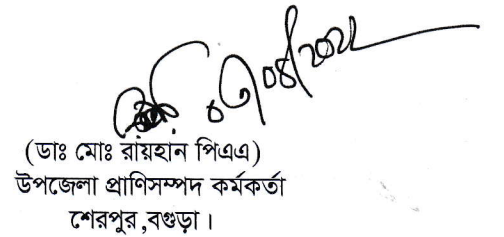 (ডাঃ মোঃ রায়হান পিএএ)
উপজেলা প্রাণিসম্পদ কর্মকর্তা
শেরপুর,বগুড়া।